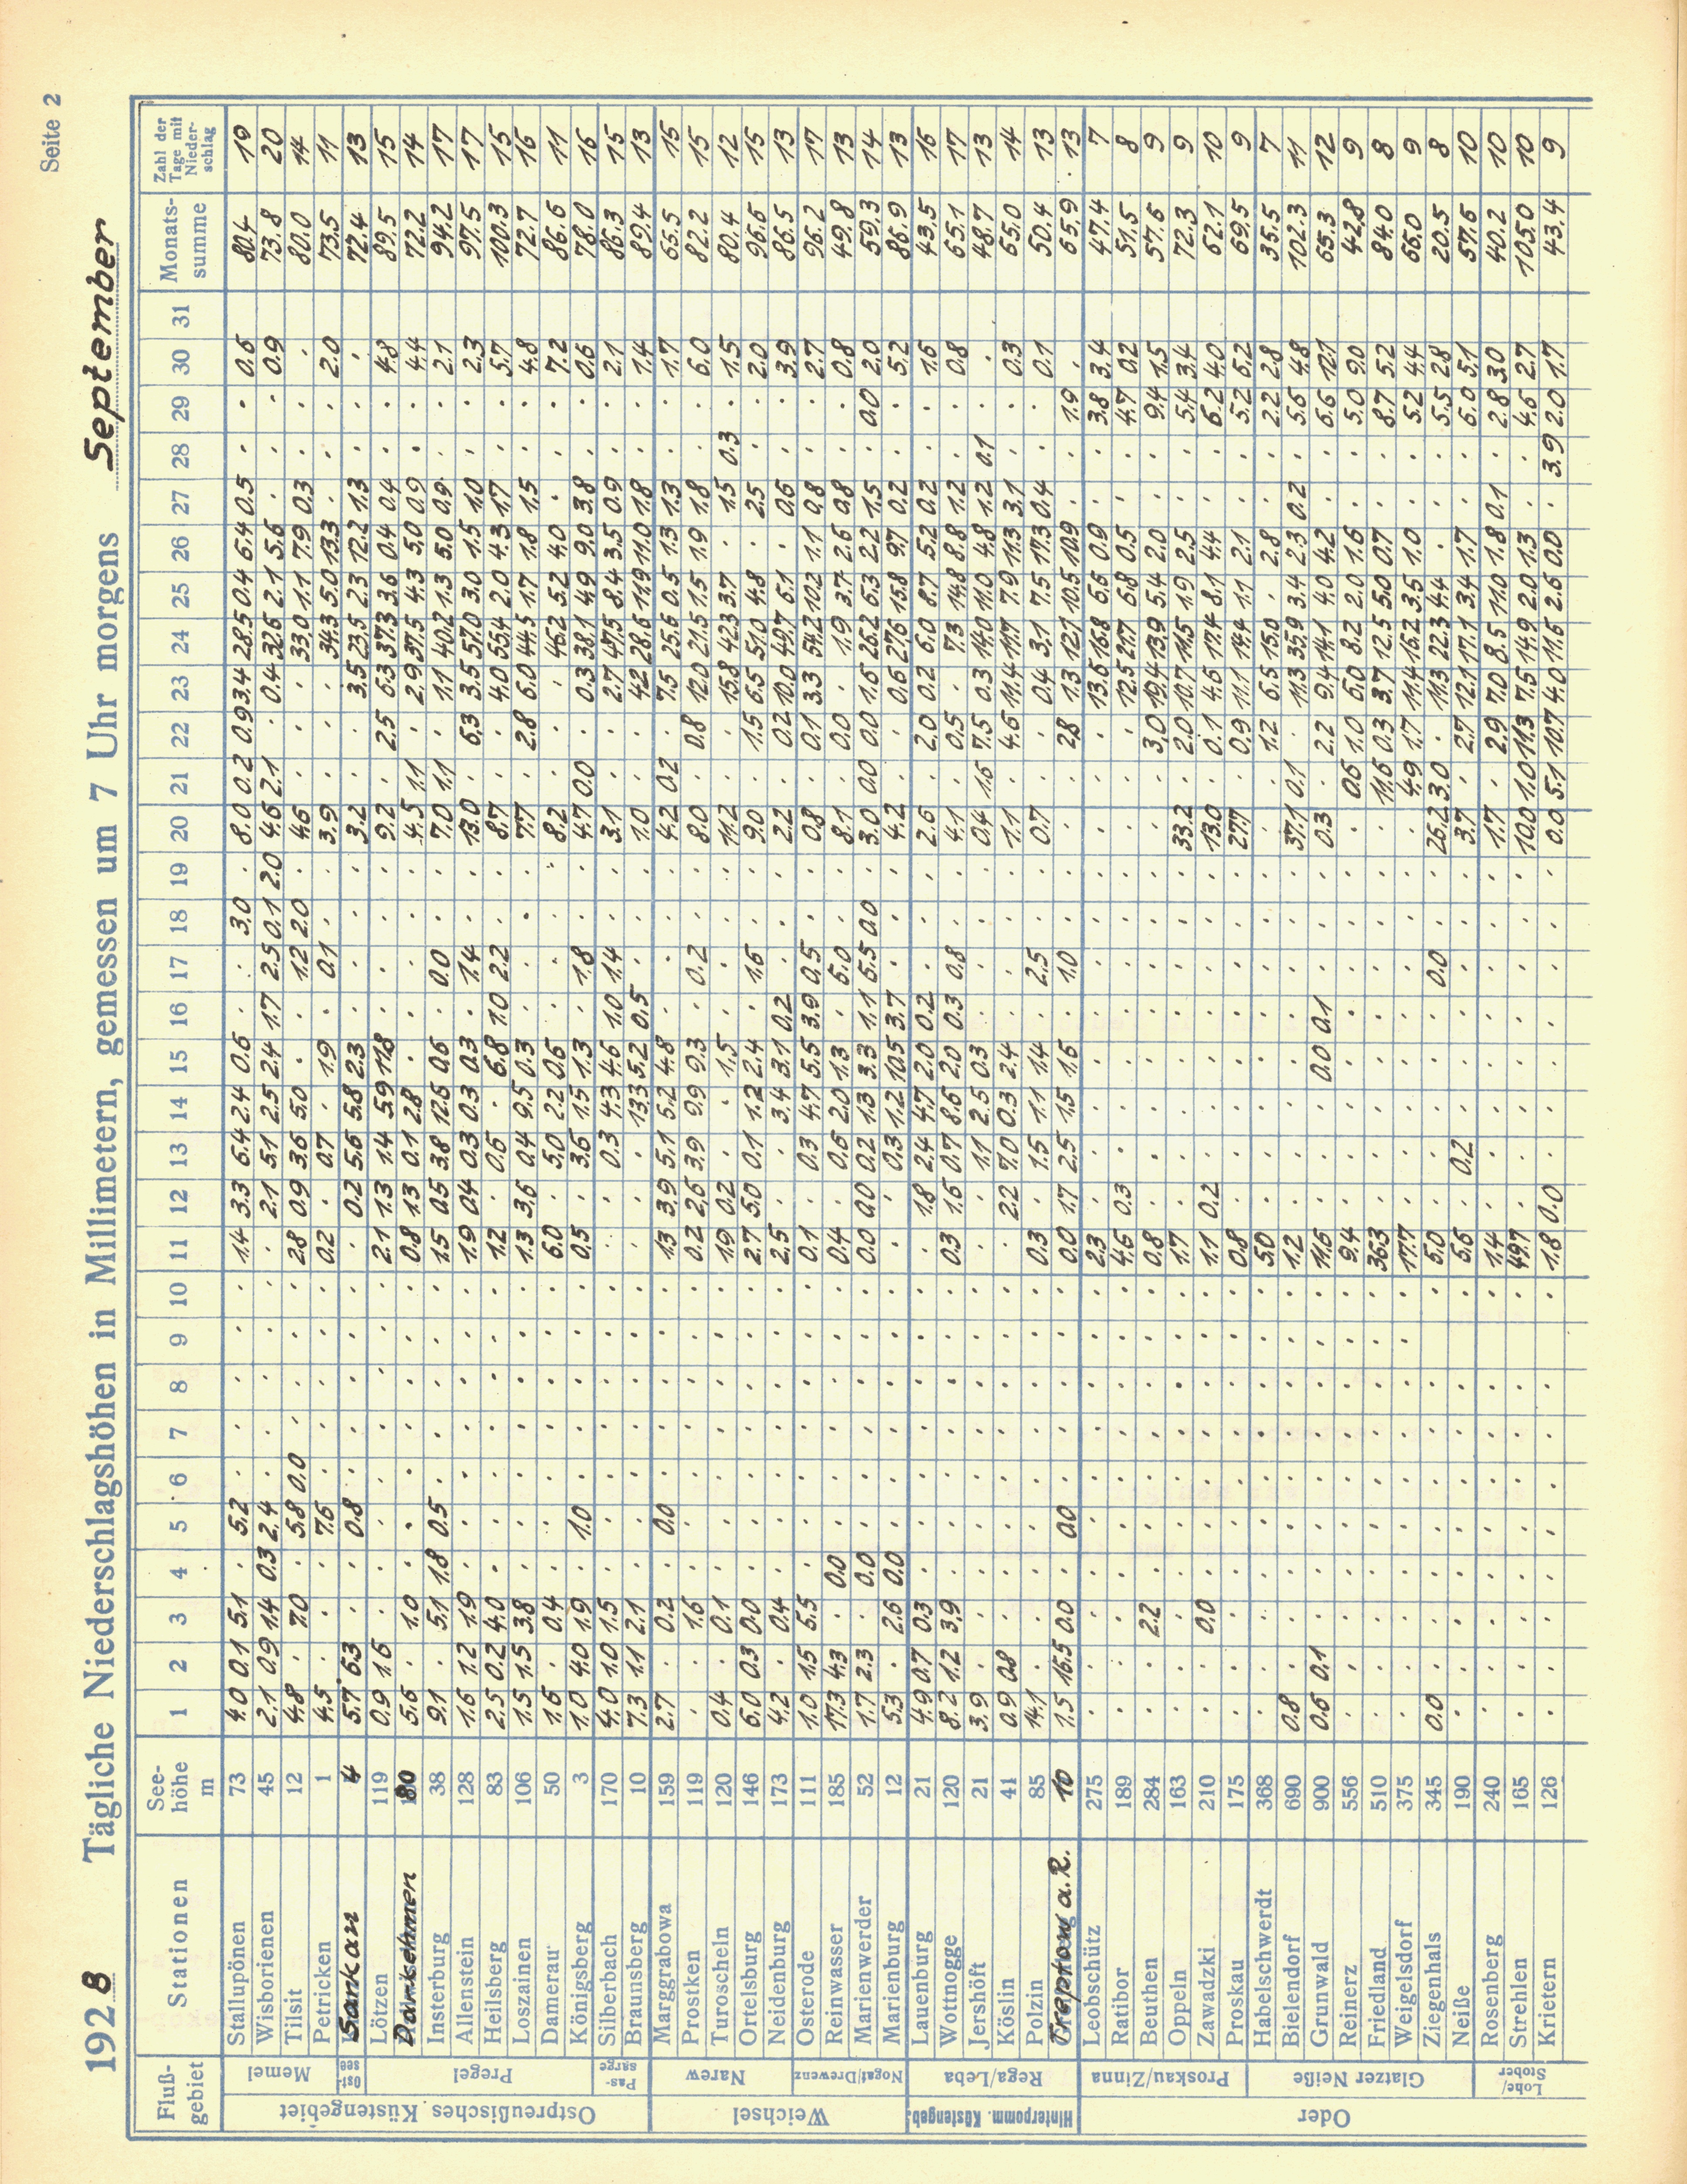 Seite 2
1928 Tägliche Niederschlagshöhen in Millimetern, gemessen um 7 Uhr morgens September
Fluß-gebiet Stationen See-höhe m 1 2 3 4 5 6 7 8 9 10 11 12 13 14 15 16 17 18 19 20 21 22 23 24 25 26 27 28 29 30 31 Monats-summe Zahl der Tage mit Nieder-schlag
Ostpreußisches Küstengebiet
Memel
Stallupönen 73 4.0 0.1 5.1 . 5.2 . . . . . 1.4 3.3 6.4 2.4 0.6 . . 3.0 . 8.0 0.2 0.9 3.4 28.5 0.4 6.4 0.5 . . 0.6 80.4 19
Wisborienen 45 2.1 0.9 1.4 0.3 2.4 . . . . . . 2.1 5.1 2.5 2.4 1.7 2.5 0.1 2.0 4.6 2.1 . 0.4 32.6 2.1 5.6 . . . 0.9 73.8 20
Tilsit 12 4.8 . 7.0 . 5.8 0.0 . . . . 2.8 0.9 3.6 5.0 . . 1.2 2.0 . 4.6 . . . 33.0 1.1 7.9 0.3 . . . 80.0 14
Petricken 1 4.5 . . . 7.6 . . . . . 0.2 . 0.7 . 1.9 . 0.1 . . 3.9 . . . 34.3 5.0 13.3 . . . 2.0 73.5 11
Ost-see
Sankau 4 5.7 6.3 . . 0.8 . . . . . . 0.2 5.6 5.8 2.3 . . . . 3.2 . . 3.5 23.5 2.3 12.2 1.3 . . . 72.4 13
Pregel
Lötzen 119 0.9 1.6 . . . . . . . . 2.1 1.3 1.4 5.9 11.8 . . . . 9.2 . 2.5 6.3 37.3 3.6 0.4 0.4 . . 4.8 89.5 15
Darkehmen 80 5.6 . 1.0 . . . . . . . 0.8 1.3 0.1 2.8 . . . . . 4.5 1.1 . 2.9 37.5 4.3 5.0 0.9 . . 4.4 72.2 14
Insterburg 38 9.1 . 5.1 1.8 0.5 . . . . . 1.5 0.5 3.8 12.6 0.6 . 0.0 . . 7.0 1.1 . 1.1 40.2 1.3 5.0 0.9 . . 2.1 94.2 17
Allenstein 128 1.6 1.2 1.9 . . . . . . . 1.9 0.4 0.3 0.3 0.3 . 1.4 . . 13.0 . 6.3 3.5 57.0 3.0 1.5 1.0 . . 2.3 97.5 17
Heilsberg 83 2.5 0.2 4.0 . . . . . . . 1.2 . 0.6 . 6.8 1.0 2.2 . . 8.7 . . 4.0 55.4 2.0 4.3 1.7 . . 5.7 100.3 15
Loszainen 106 1.5 1.5 3.8 . . . . . . . 1.3 3.6 0.4 9.5 0.3 . . . . 7.7 . 2.8 6.0 44.5 1.7 1.8 1.5 . . 4.8 72.7 16
Damerau 50 1.6 . 0.4 . . . . . . . 6.0 . 5.0 2.2 0.6 . . . . 8.2 . . . 46.2 5.2 4.0 . . . 7.2 86.6 11
Königsberg 3 1.0 4.0 1.9 . 1.0 . . . . . 0.5 . 3.6 1.5 1.3 . 1.8 . . 4.7 0.0 . 0.3 38.1 4.9 9.0 3.8 . . 0.6 78.0 16
Pas-sarge
Silberbach 170 4.0 1.0 1.5 . . . . . . . . . 0.3 4.3 4.6 1.0 1.4 . . 3.1 . . 2.7 47.5 8.4 3.5 0.9 . . 2.1 86.3 15
Braunsberg 10 7.3 1.1 2.1 . . . . . . . . . . 13.3 5.2 0.5 . . . 1.0 . . 4.2 28.6 11.9 11.0 1.8 . . 1.4 89.4 13
Weichsel
Narew
Marggrabowa 159 2.7 . 0.2 . 0.0 . . . . . 1.3 3.9 5.1 5.2 4.8 . . . . 4.2 0.2 . 7.5 25.6 0.5 1.3 1.3 . . 1.7 65.5 15
Prostken 119 . . 1.6 . . . . . . . 0.2 2.6 3.9 9.9 9.3 . 0.2 . . 8.0 . 0.8 12.0 21.5 1.5 1.9 1.8 . . 6.0 82.2 15
Turoscheln 120 0.4 . 0.1 . . . . . . . 1.9 0.2 . . 1.5 . . . . 11.2 . . 15.8 42.3 3.7 . 1.5 0.3 . 1.5 80.4 12
Ortelsburg 146 6.0 0.3 0.0 . . . . . . . 2.7 5.0 0.1 1.2 2.4 . 1.6 . . 9.0 . 1.5 6.5 51.0 4.8 . 2.5 . . 2.0 96.6 15
Neidenburg 173 4.2 . 0.4 . . . . . . . 2.5 . . 3.4 3.1 0.2 . . . 2.2 . 0.2 10.0 49.7 6.1 . 0.6 . . 3.9 86.5 13
Nogat/Drewenz
Osterode 111 1.0 1.5 5.5 . . . . . . . 0.1 . 0.3 4.7 5.5 3.9 0.5 . . 0.8 . 0.1 3.3 54.2 10.2 1.1 0.8 . . 2.7 96.2 17
Reinwasser 185 17.3 4.3 . 0.0 . . . . . . 0.4 . 0.6 2.0 1.3 . 6.0 . . 8.1 . 0.0 . 1.9 3.7 2.6 0.8 . . 0.8 49.8 13
Marienwerder 52 1.7 2.3 . 0.0 . . . . . . 0.0 0.0 0.2 1.3 3.3 1.1 6.5 0.0 . 3.0 0.0 0.0 1.6 26.2 6.3 2.2 1.5 . 0.0 2.0 59.3 14
Marienburg 12 5.3 . 2.6 0.0 . . . . . . . . 0.3 1.2 10.5 3.7 . . . 4.2 . . 0.6 27.6 15.8 9.7 0.2 . . 5.2 86.9 13
Hinterpomm. Küstengeb.
Rega/Leba
Lauenburg 21 4.9 0.7 0.3 . . . . . . . . 1.8 2.4 4.7 2.0 0.2 . . . 2.6 . 2.0 0.2 6.0 8.7 5.2 0.2 . . 1.6 43.5 16
Wottnogge 120 8.2 1.2 3.9 . . . . . . . 0.3 1.6 0.7 8.6 2.0 0.3 0.8 . . 4.1 . 0.5 . 7.3 14.8 8.8 1.2 . . 0.8 65.1 17
Jershöft 21 3.9 . . . . . . . . . . . 1.1 2.5 0.3 . . . . 0.4 1.6 7.5 0.3 14.0 11.0 4.8 1.2 0.1 . . 48.7 13
Köslin 41 0.9 0.8 . . . . . . . . . 2.2 7.0 0.3 2.4 . . . . 1.1 . 4.6 11.4 11.7 7.9 11.3 3.1 . . 0.3 65.0 14
Polzin 85 14.1 . . . . . . . . . 0.3 . 1.5 1.1 1.4 . 2.5 . . 0.7 . . 0.4 3.1 7.5 17.3 0.4 . . 0.1 50.4 13
Treptow a.R. 10 1.5 16.5 0.0 . 0.0 . . . . . 0.0 1.7 2.5 1.5 1.6 . 1.0 . . . . 2.8 1.3 12.1 10.5 10.9 . . 1.9 . 65.9 13
Oder
Proskau/Zinna
Leobschütz 275 . . . . . . . . . . 2.3 . . . . . . . . . . . 13.6 16.8 6.6 0.9 . . 3.8 3.4 47.4 7
Ratibor 189 . . . . . . . . . . 4.6 0.3 . . . . . . . . . . 12.5 21.7 6.8 0.5 . . 4.7 0.2 51.5 8
Beuthen 284 . . 2.2 . . . . . . . 0.8 . . . . . . . . . . 3.0 19.4 13.9 5.4 2.0 . . 9.4 1.5 57.6 9
Oppeln 163 . . . . . . . . . . 1.7 . . . . . . . . 33.2 . 2.0 10.7 11.5 1.9 2.5 . . 5.4 3.4 72.3 9
Zawadzki 210 . . 0.0 . . . . . . . 1.1 0.2 . . . . . . . 13.0 . 0.1 4.6 17.4 8.1 4.4 . . 6.2 4.0 62.1 10
Proskau 175 . . . . . . . . . . 0.8 . . . . . . . . 27.7 . 0.9 11.1 14.4 1.1 2.1 . . 5.2 6.2 69.5 9
Glatzer Neiße
Habelschwerdt 368 . . . . . . . . . . 5.0 . . . . . . . . . . 1.2 6.5 15.0 . 2.8 . . 2.2 2.8 35.5 7
Bielendorf 690 0.8 . . . . . . . . . 1.2 . . . . . . . . 37.1 0.1 . 11.3 35.9 3.4 2.3 0.2 . 5.6 4.8 102.3 11
Grunwald 900 0.6 0.1 . . . . . . . . 11.6 . . . 0.0 0.1 . . . 0.3 . 2.2 9.4 14.1 4.0 4.2 . . 6.6 12.1 65.3 12
Reinerz 556 . . . . . . . . . . 9.4 . . . . . . . . . 0.6 1.0 6.0 8.2 2.0 1.6 . . 5.0 9.0 42.8 9
Friedland 510 . . . . . . . . . . 36.3 . . . . . . . . . 11.6 0.3 3.7 12.5 5.0 0.7 . . 8.7 5.2 84.0 8
Weigelsdorf 375 . . . . . . . . . . 17.7 . . . . . . . . . 4.9 1.7 11.4 16.2 3.5 1.0 . . 5.2 4.4 66.0 9
Ziegenhals 345 0.0 . . . . . . . . . 5.0 . . . . . 0.0 . . 26.2 3.0 . 11.3 22.3 4.4 . . . 5.5 2.8 20.5 8
Neiße 190 . . . . . . . . . . 5.6 . 0.2 . . . . . . 3.7 . 2.7 12.1 17.1 3.4 1.7 . . 6.0 5.1 57.6 10
Lohe/Stober
Rosenberg 240 . . . . . . . . . . 1.4 . . . . . . . . 1.7 . 2.9 7.0 8.5 11.0 1.8 0.1 . 2.8 3.0 40.2 10
Strehlen 165 . . . . . . . . . . 49.7 . . . . . . . . 10.0 1.0 11.3 7.5 14.9 2.0 1.3 . . 4.6 2.7 105.0 10
Krietern 126 . . . . . . . . . . 1.8 0.0 . . . . . . . 0.0 5.1 10.7 4.0 11.6 2.6 0.0 . 3.9 2.0 1.7 43.4 9